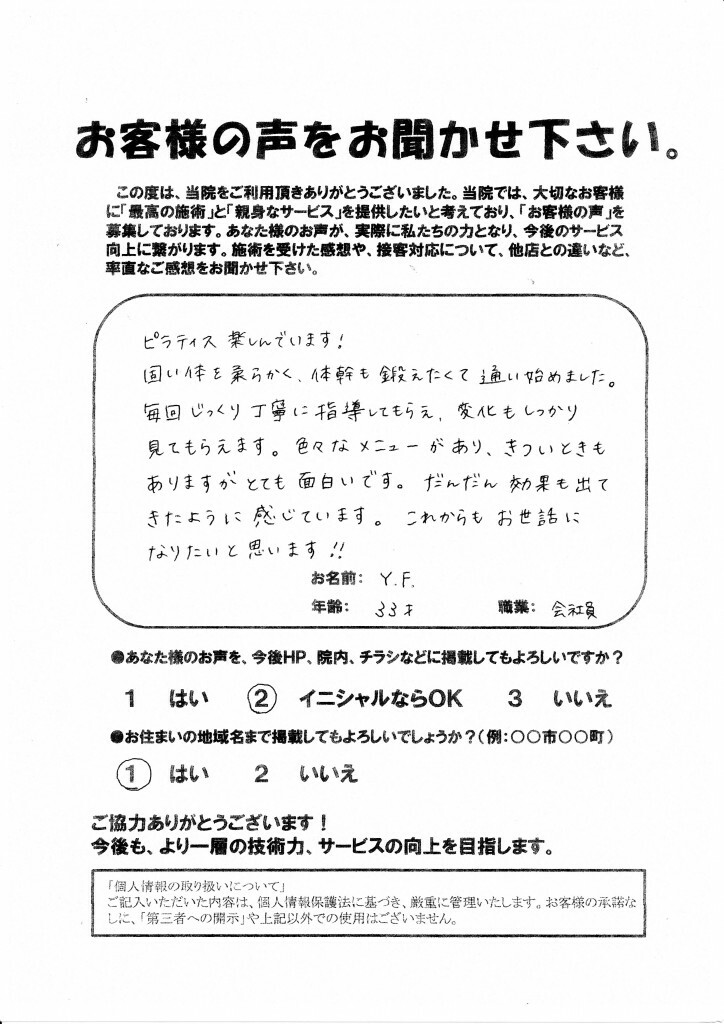 お客様の声をお聞かせ下さい。
この度は、当院をご利用頂きありがとうございました。当院では、大切なお客様
に「最高の施術」と「親身なサービス」を提供したいと考えており、「お客様の声」を
募集しております。あなた様のお声が、実際に私たちの力となり、今後のサービス
向上に繋がります。施術を受けた感想や、接客対応について、他店との違いなど、
率直なご感想をお聞かせ下さい。
ピラティス楽しんでいます!
固い体を柔らかく、体幹も鍛えたくて通い始めました。
毎回じっくり丁寧に指導してもらえ、変化もしっかり
見てもらえます。色々なメニューがあり、きついときも
ありますがとても面白いです。だんだん効果も出て
きたように感じています。これからもお世話に
なりたいと思います!!
お名前: Y.F.
年齢: 33才 職業: 会社員
●あなた様のお声を、今後HP、院内、チラシなどに掲載してもよろしいですか?
1 はい ② イニシャルならOK 3 いいえ
●お住まいの地域名まで掲載してもよろしいでしょうか?(例:○○市○○町)
① はい 2 いいえ
ご協力ありがとうございます!
今後も、より一層の技術力、サービスの向上を目指します。
「個人情報の取り扱いについて」
ご記入いただいた内容は、個人情報保護法に基づき、厳重に管理いたします。お客様の承諾な
しに、「第三者への開示」や上記以外での使用はございません。